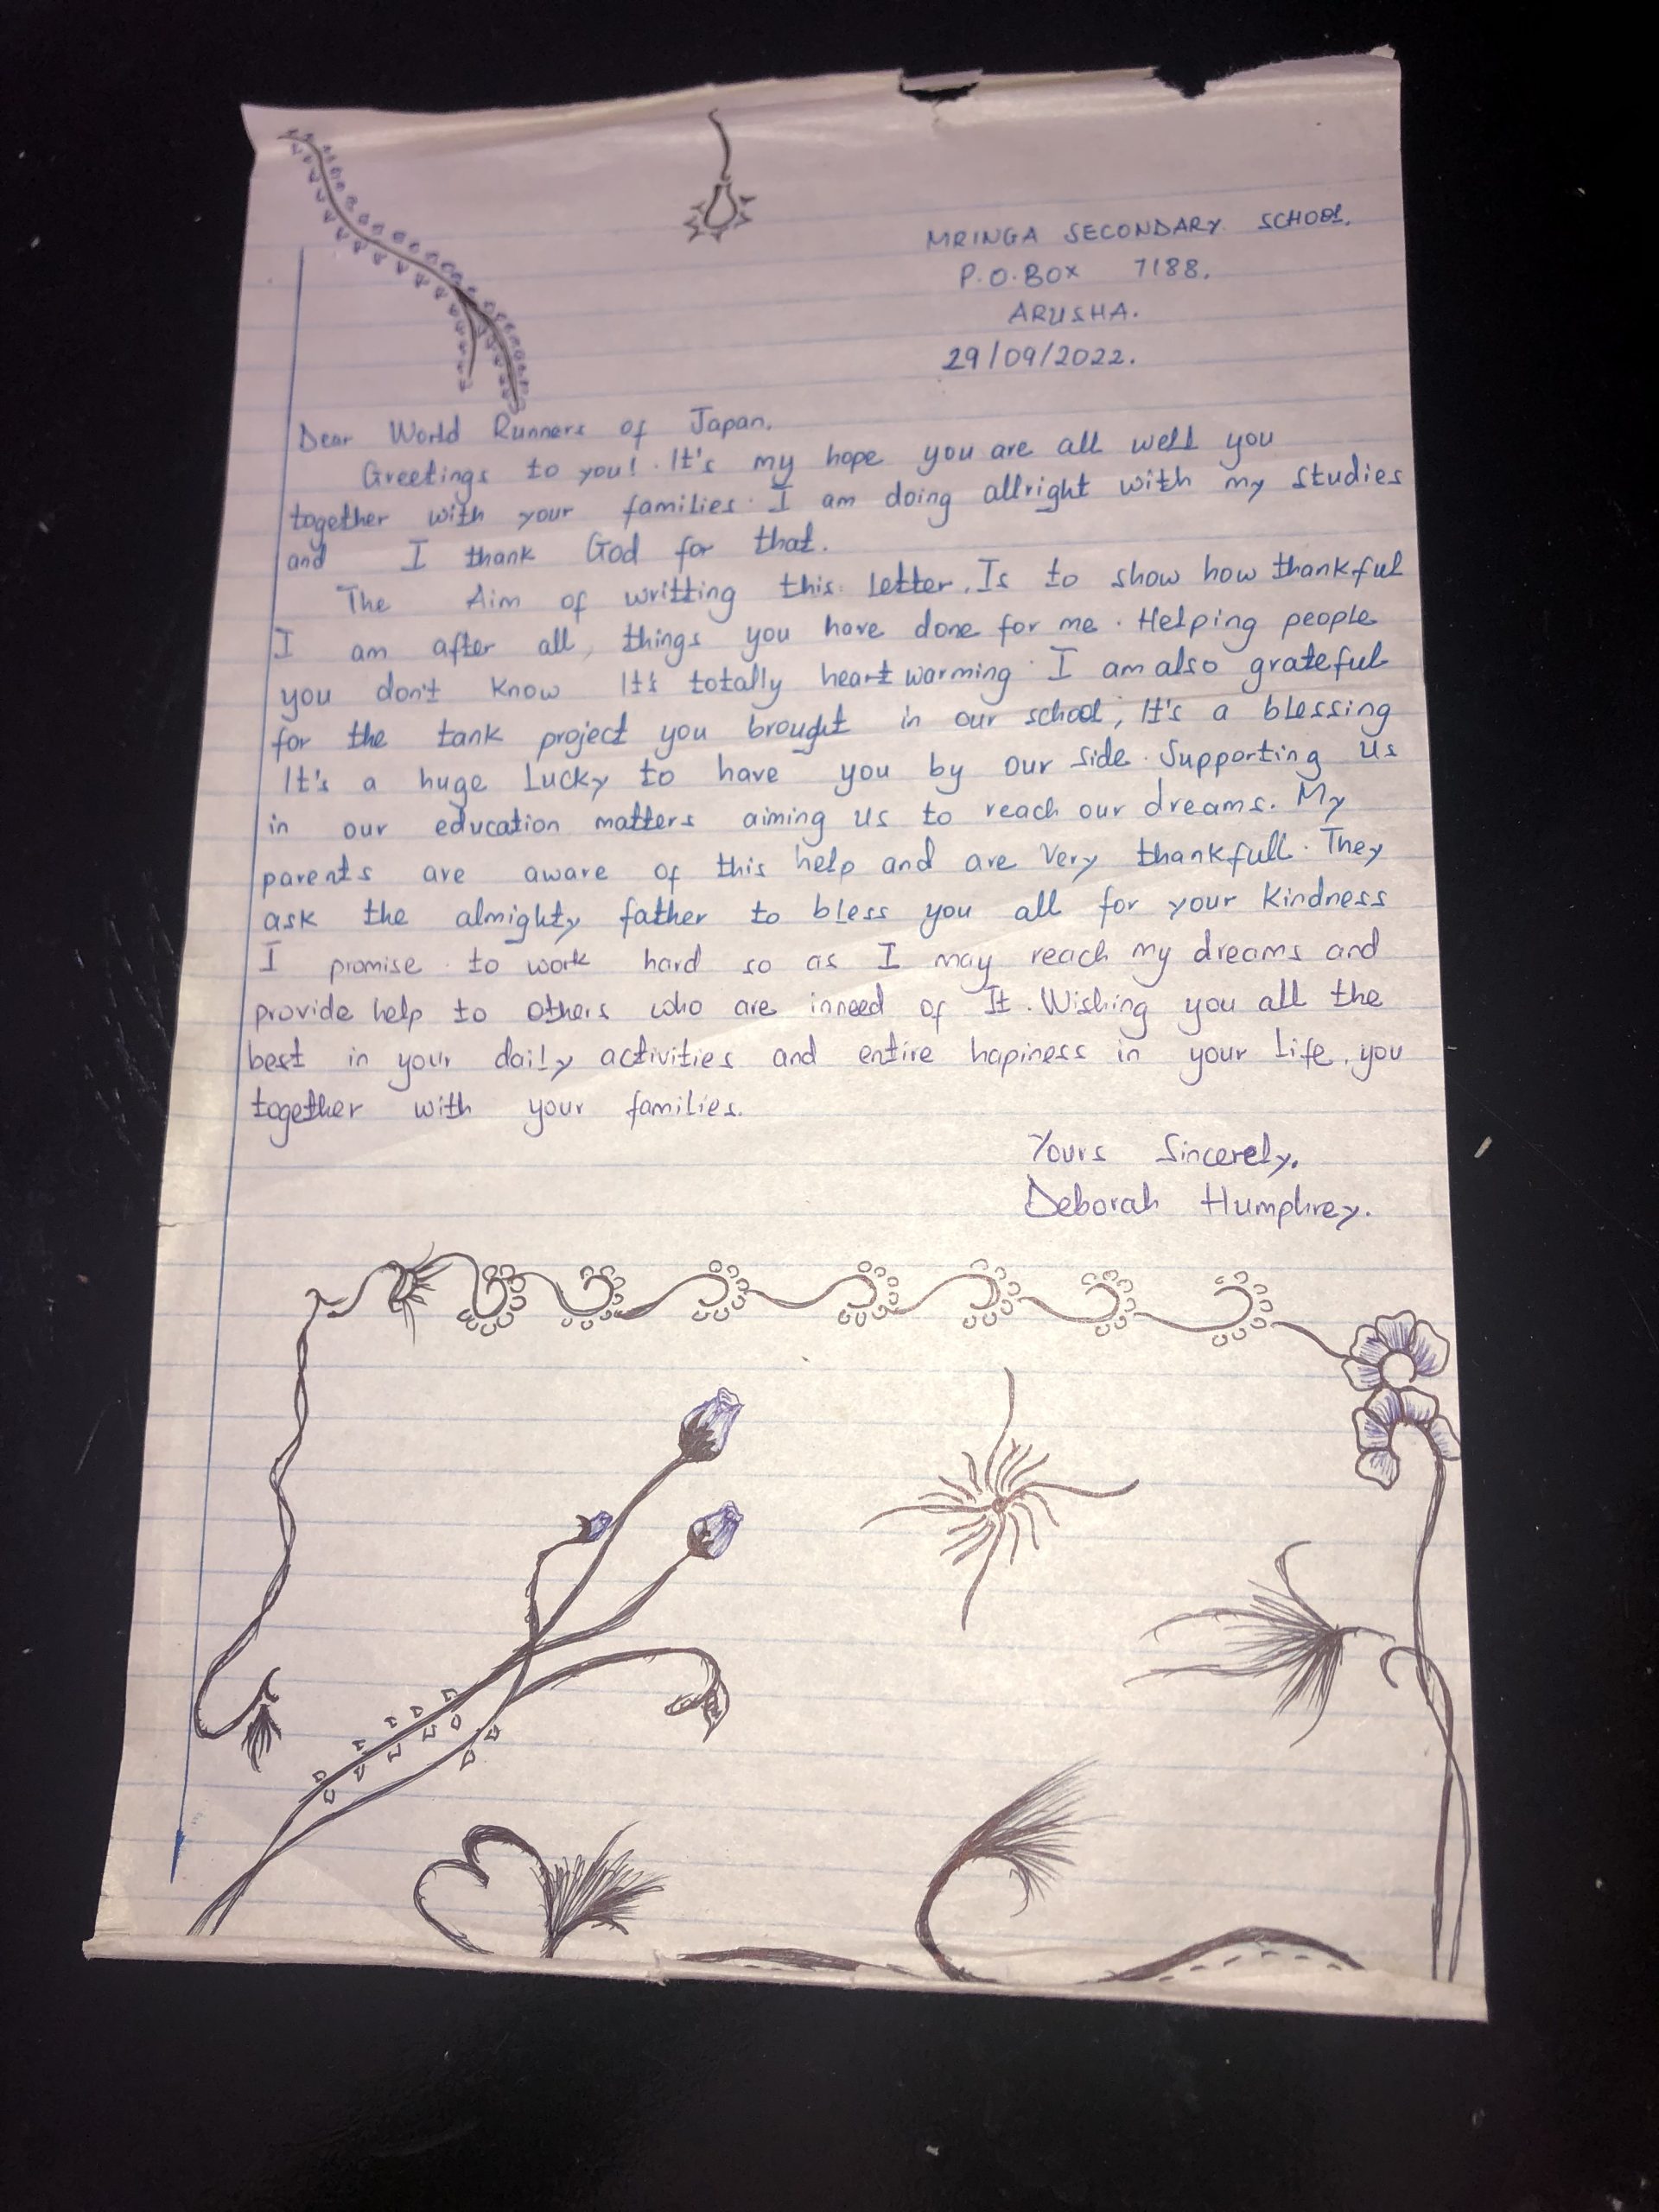 MRINGA SECONDARY SCHOOL.
P.O.BOX 7188.
ARUSHA.
29/09/2022.
Dear World Runners of Japan.
Greetings to you! It's my hope you are all well you
together with your families. I am doing allright with my studies
and I thank God for that.
The Aim of writting this letter. Is to show how thankful
I am after all, things you have done for me. Helping people
you don't know It's totally heart warming. I am also grateful
for the tank project you brought in our school, It's a blessing
It's a huge Lucky to have you by our side. Supporting us
in our education matters aiming us to reach our dreams. My
parents are aware of this help and are Very thankfull. They
ask the almighty father to bless you all for your kindness
I promise to work hard so as I may reach my dreams and
provide help to others who are inneed of It. Wishing you all the
best in your daily activities and entire hapiness in your Life, you
together with your families.
Yours Sincerely.
Deborah Humphrey.